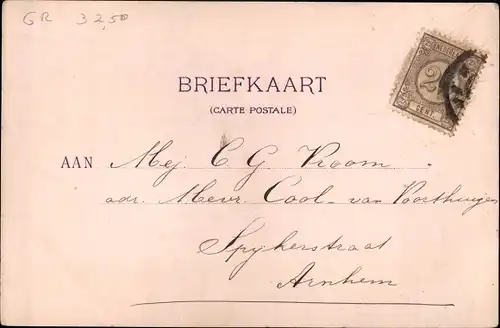 GR 32,50
BRIEFKAART
(CARTE POSTALE)
AAN Mej. C. G. Kroom.
adr. Mevr. Cool-van Voorthuijsen
Spijkerstraat
Arnhem
2½
CENT